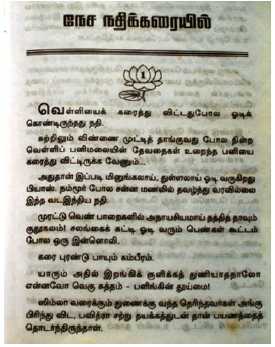 நேச நதிக்கரையில்
1
வெள்ளியைக் கரைத்து விட்டதுபோல ஓடிக்
கொண்டிருந்தது நதி.
சுற்றிலும் விண்ணை முட்டித் தாங்குவது போல நின்ற
வெள்ளிப் பனிமலையின் தேவதைகள் உறைந்த பனியை
கரைத்து விட்டிருக்க வேணும்...
அதுதான் இப்படி மினுங்கலாய், துள்ளலாய் ஓடி வருகிறது
பியாஸ். நம்மூர் போல சன்ன மணலில் தவழ்ந்து வரவில்லை
இந்த வடஇந்திய நதி.
முரட்டு வெண் பாறைகளில் அநாயசியமாய் தத்தித் தாவும்
குதூகலம்! சலங்கைக் கட்டி ஓடி வரும் பெண்கள் கூட்டம்
போல ஒரு இன்னொலி.
கரை புரண்டு பாயும் கம்பீரம்.
யாரும் அதில் இறங்கிக் குளிக்கத் துணியாததாலோ
என்னவோ வெகு சுத்தம் - பளிங்கின் தூய்மை!
ஸிம்லா வரைக்கும் துணைக்கு வந்த தெரிந்தவர்கள் அங்கு
பிரிந்து விட, பவித்ரா சற்று தயக்கத்துடன் தான் பயணத்தைத்
தொடர்ந்திருந்தாள்.